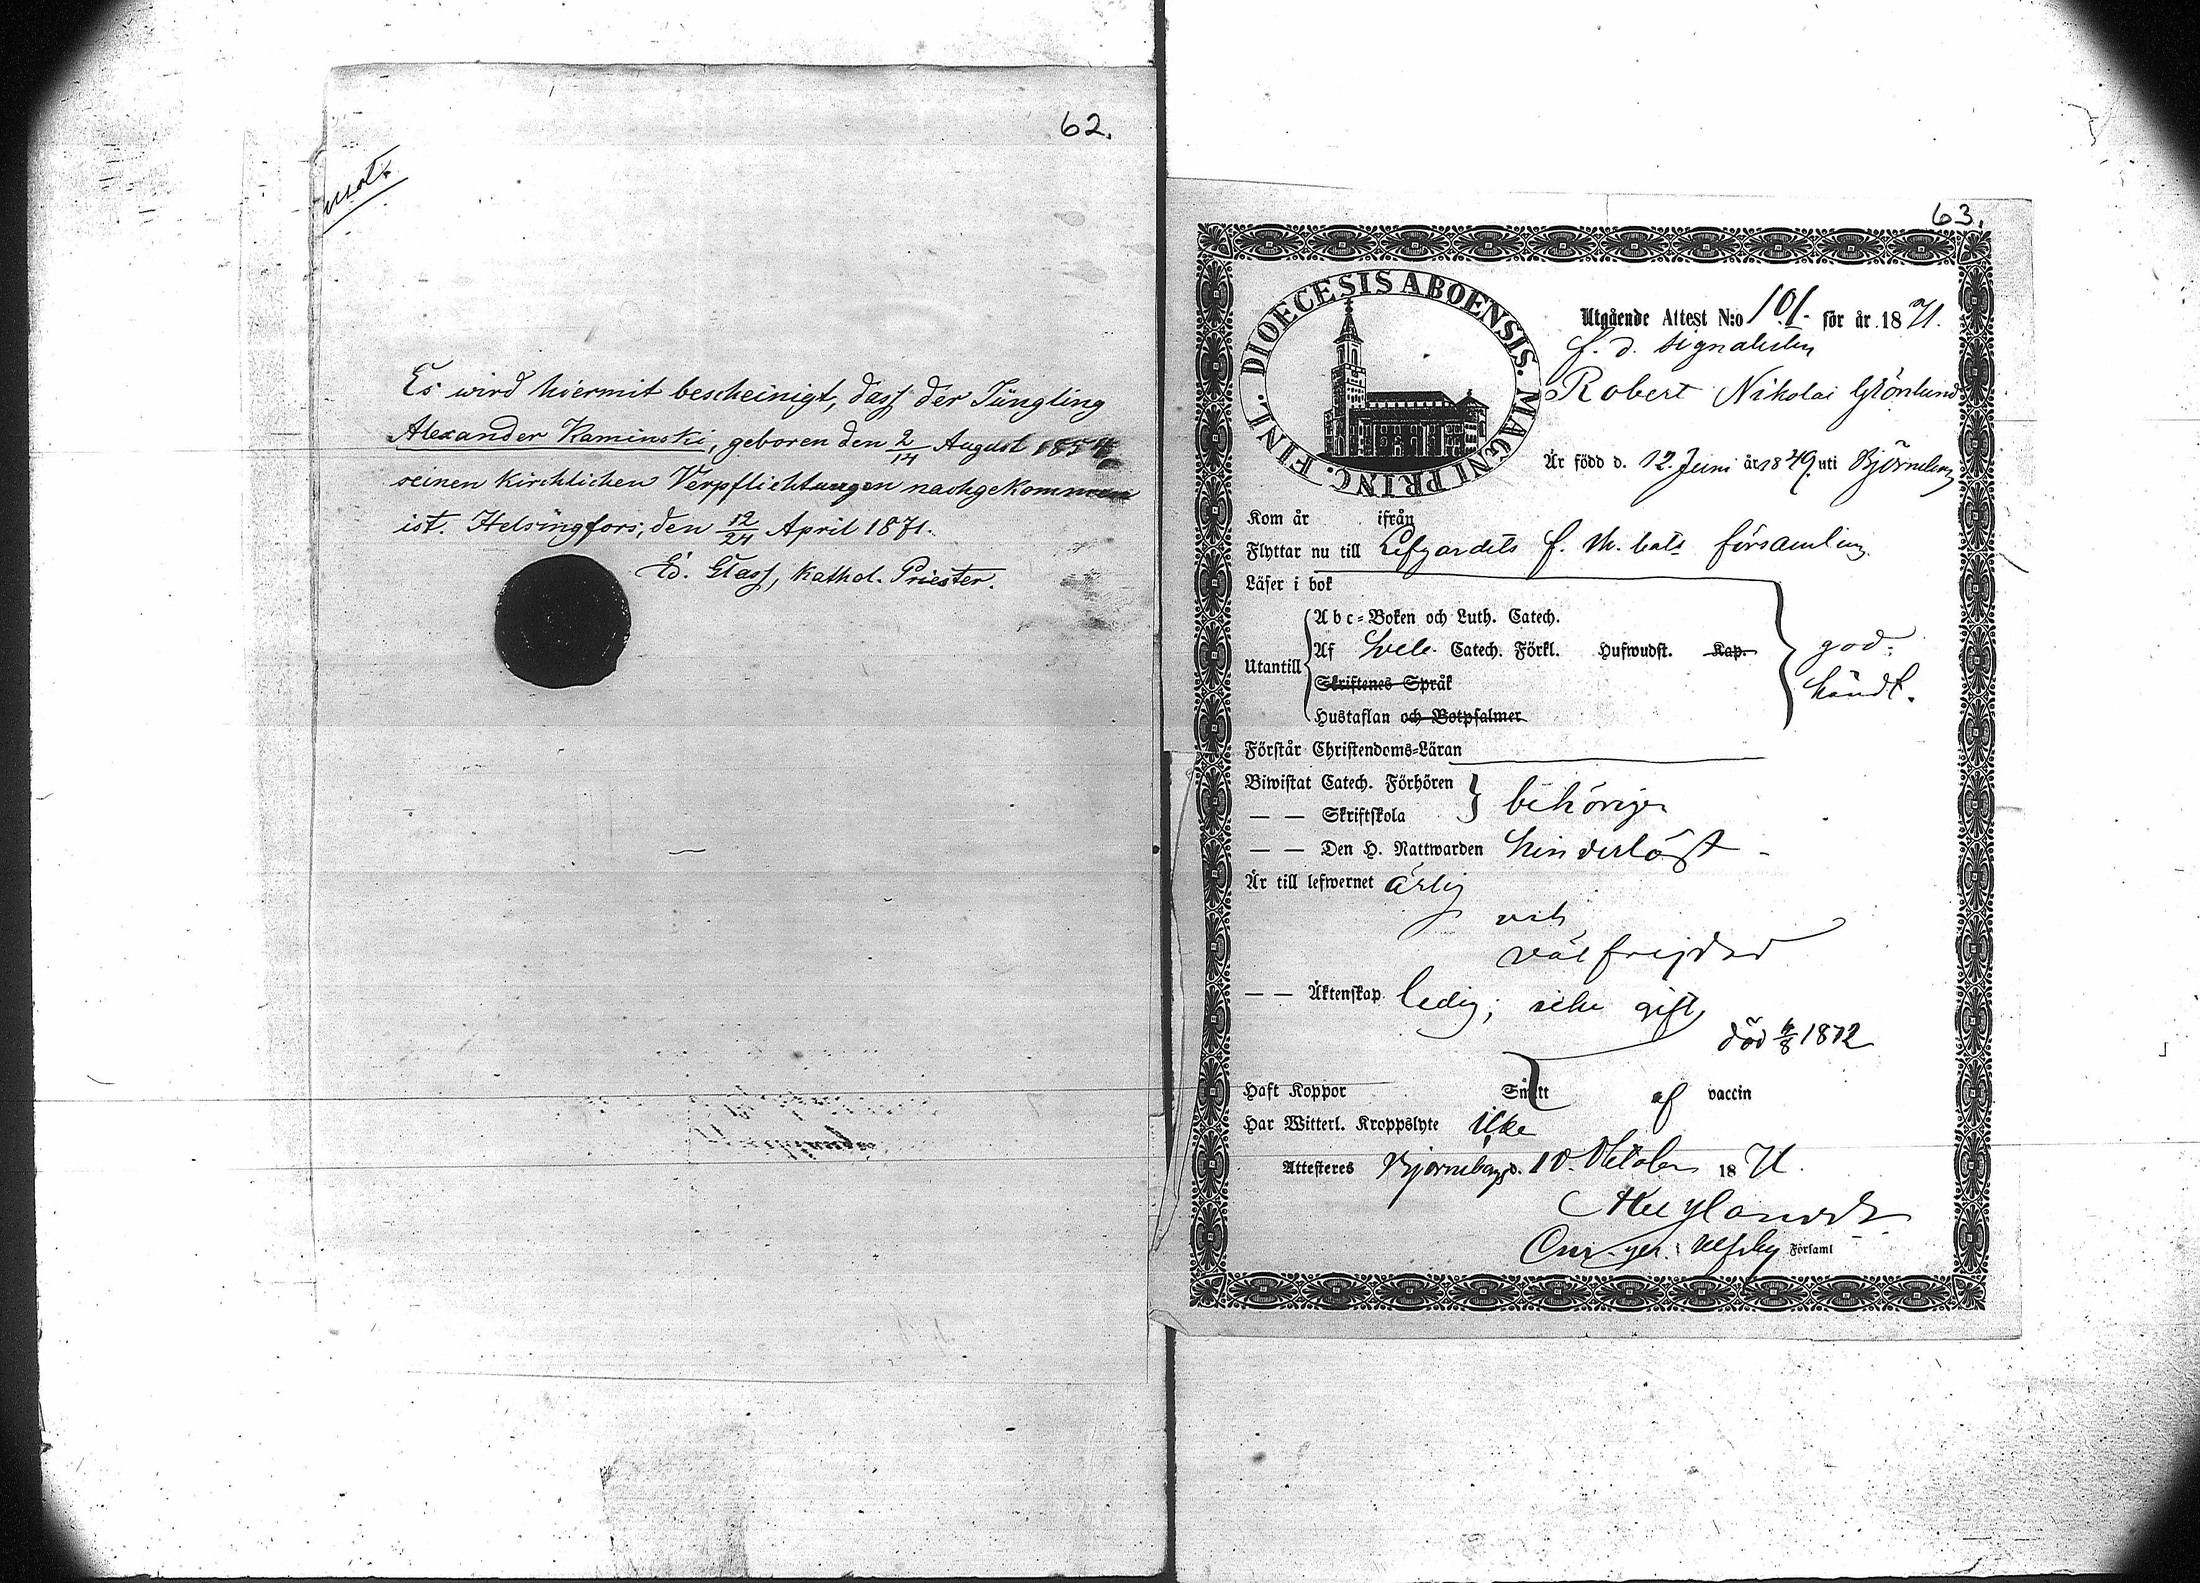 62.
Es wird hiermit bescheinigt, dass der Jüngling
Alexander Kaminski, geboren den 2/14 August 1854
seinen kirchlichen Verpflichtungen nachgekommen
ist. Helsingfors, den 12/24 April 1871.
Ed. Glass, kathol. Priester.
63.
DIOECESIS ABOENSIS. MAGNI PRINC. FINL.
Utgående Attest N:o 101. för år 1871.
f. d. signalisten
Robert Nikolai Grönlund
Är född d. 12. Juni år 1849 uti Björneborg
Kom år ifrån
Flyttar nu till Lifgardets f. Sk. bats församling
Läser i bok
Abc-Boken och Luth. Catech.
Utantill Af Catech. Förkl. Hufwudst. Kap.
Skriftenes Språk
Hustaflan och Botpsalmer
god-
kändt.
Förstår Christendoms-Läran
Biwistat Catech. Förhören
— — Skriftskola
behörigen
— — Den H. Nattwarden hinderlöst
Är till lefwernet ärlig
och
välfrejdad
— — Äktenskap ledig; icke gift
död 6/8 1872
Haft Koppor Smitt af vaccin
Har Witterl. Kroppslyte icke
Attesteres Björneborg d. 10. Oktober 1871.
Församl